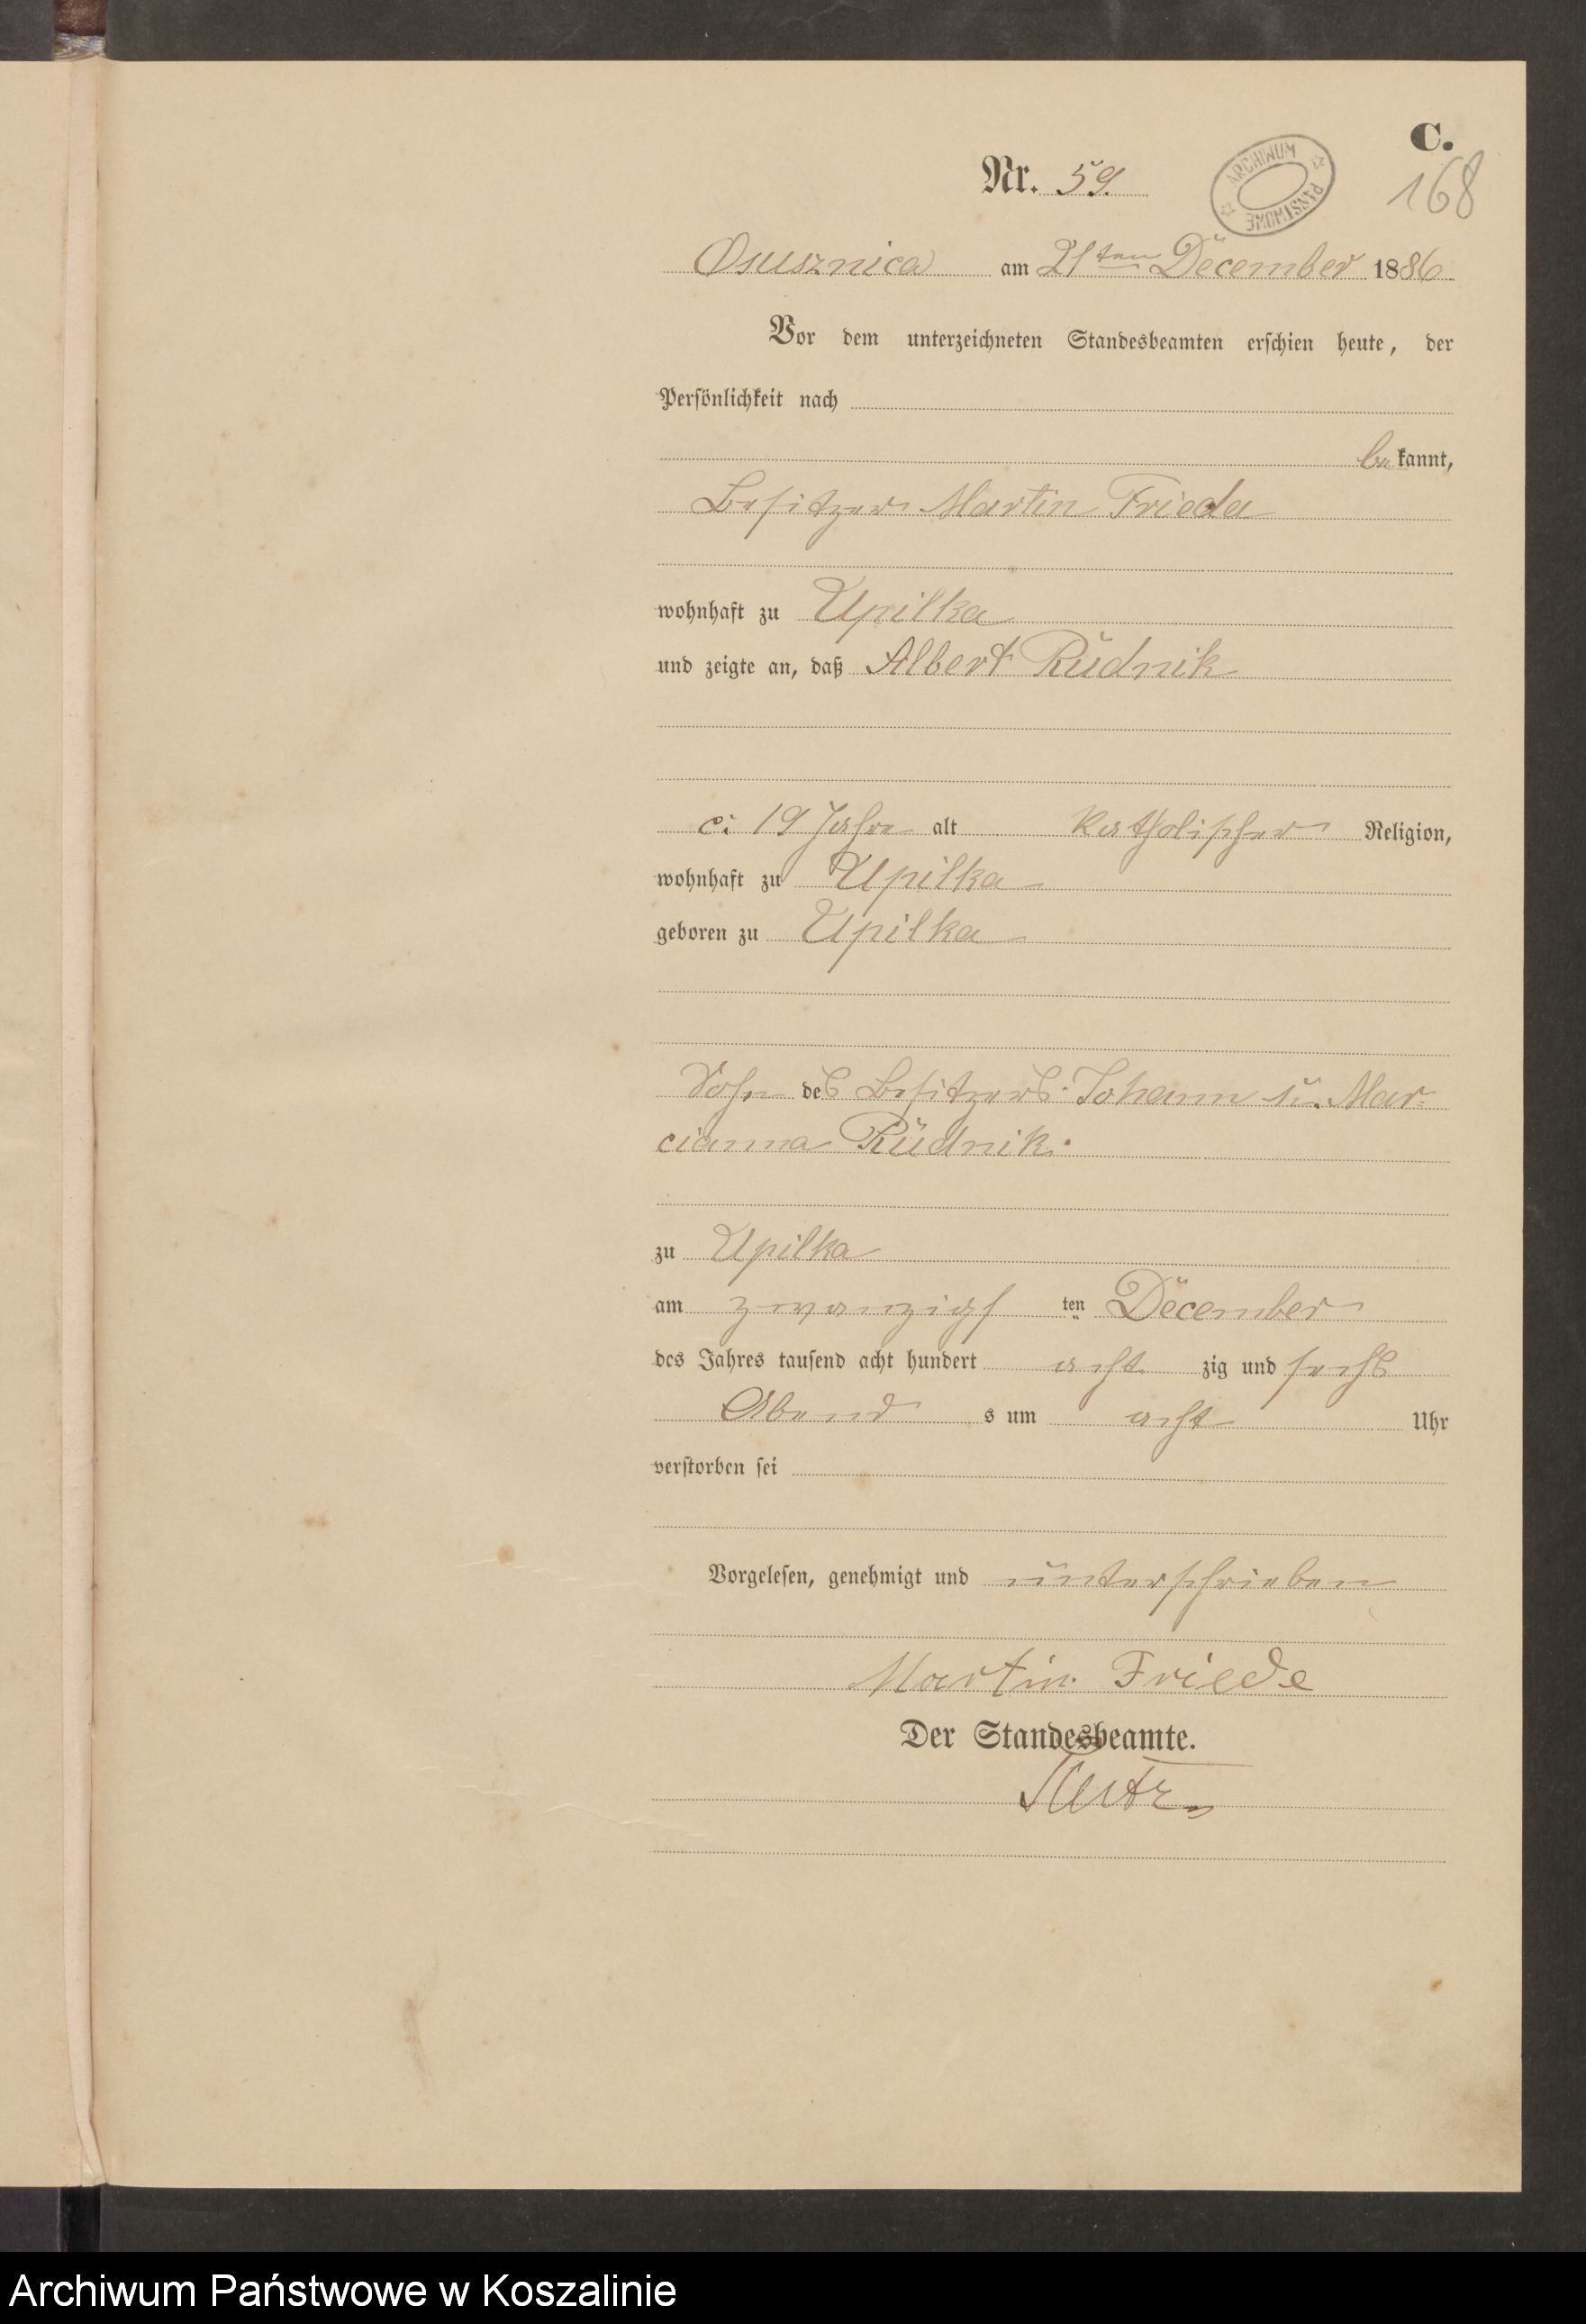 C.
Nr. 59.
ARCHIWUM PAŃSTWOWE
168
Osusznica am 21ten December 1886
Vor dem unterzeichneten Standesbeamten erschien heute, der
Persönlichkeit nach
be kannt,
Besitzer Martin Frieda
wohnhaft zu Upilka
und zeigte an, daß Albert Rudnik
c. 19 Jahre alt katholischer Religion,
wohnhaft zu Upilka
geboren zu Upilka
Sohn des Besitzers Johann u. Mar-
cianna Rudnik.
zu Upilka
am zwanzigs ten December
des Jahres tausend acht hundert acht zig und sechs
Abend s um acht Uhr
verstorben sei
Vorgelesen, genehmigt und unterschrieben
Martin Friede
Der Standesbeamte.
Archiwum Państwowe w Koszalinie